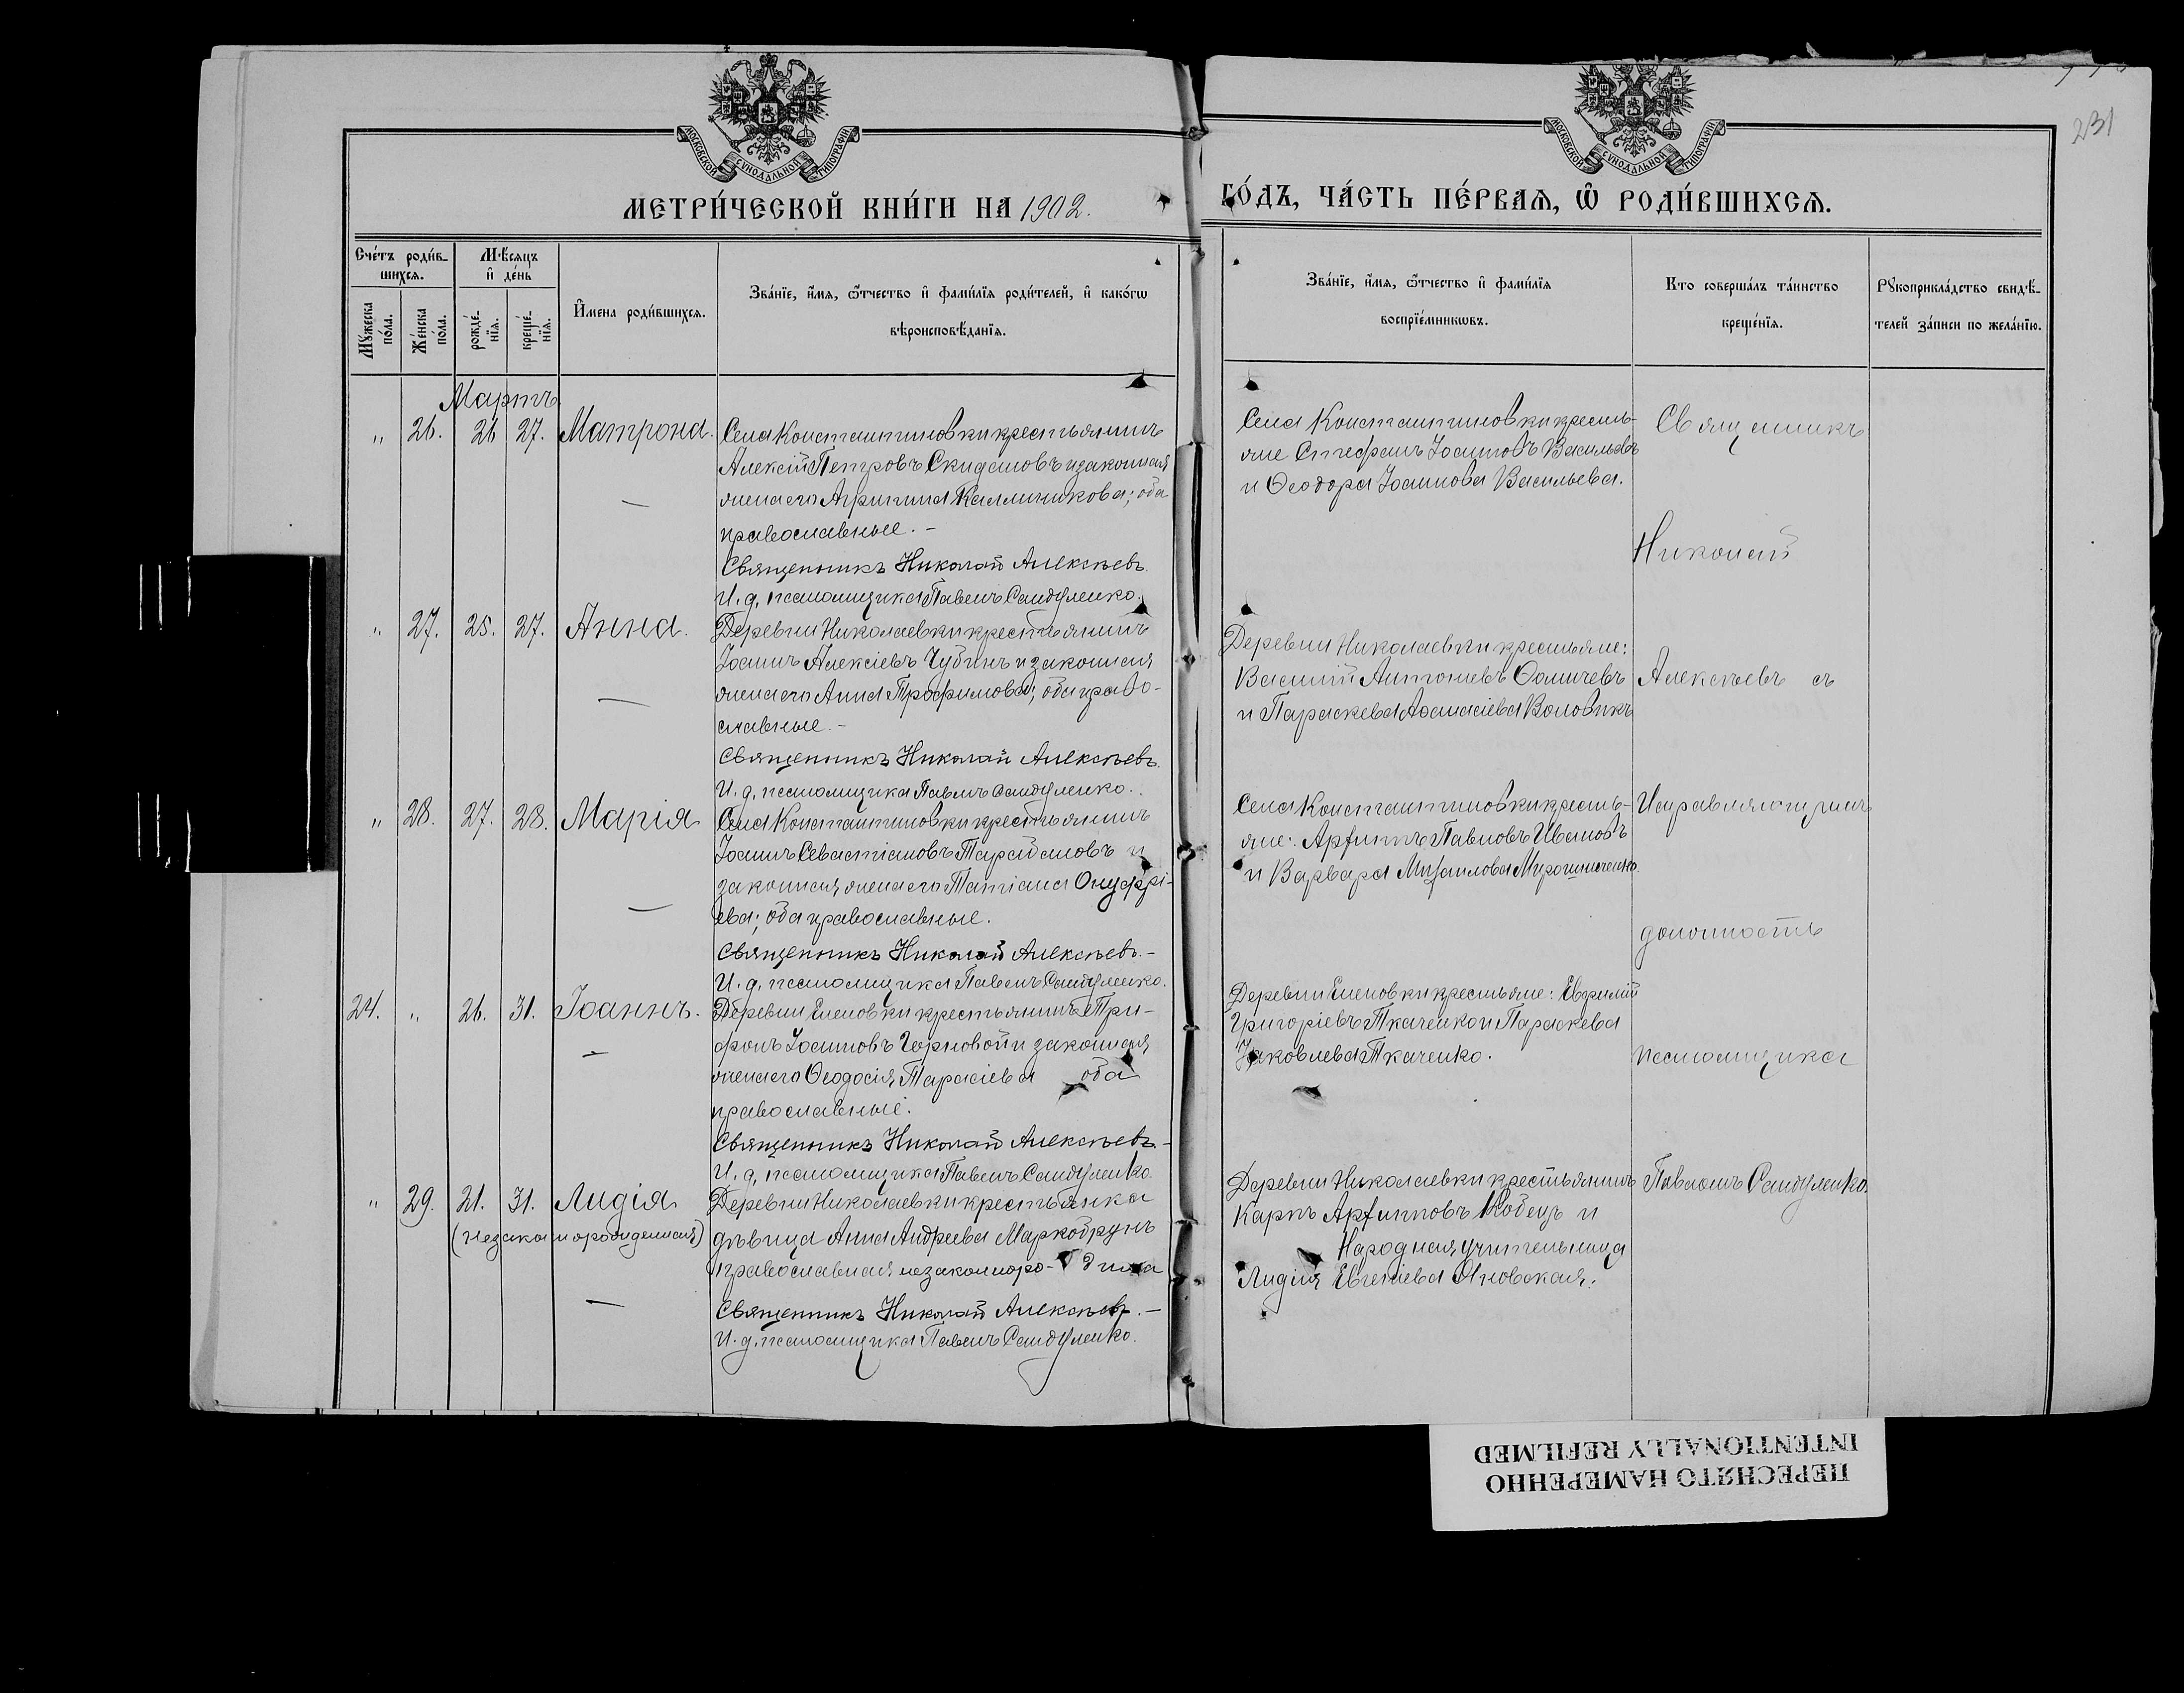 231
МОСКОВСКОЙ СѴНОДАЛЬНОЙ ТИПОГРАФІИ
МОСКОВСКОЙ СѴНОДАЛЬНОЙ ТИПОГРАФІИ
МЕТРИ́ЧЕСКОЙ КНИ́ГИ НА 1902.
ГО́ДЪ, ЧА́СТЬ ПЕ́РВАѦ, Ѡ҆ РОДИ́ВШИХСѦ.
Сче́тъ роди́в-
шихсѧ.
Мꙋжеска по́ла.
Же́нска по́ла.
Мѣ́сѧцъ
и҆ де́нь
рожде́-
нїѧ.
креще́-
нїѧ.
И҆мена роди́вшихсѧ.
Зва́нїе, и҆́мѧ, ѻ҆́тчество и҆ фами́лїѧ роди́телей, и҆ како́гѡ
вѣроисповѣ́данїѧ.
Зва́нїе, и҆́мѧ, ѻ҆́тчество и҆ фами́лїѧ
воспрїе́мникѡвъ.
Кто соверша́лъ та́инство
креще́нїѧ.
Рꙋкоприкла́дство свидѣ́-
телей за́писи по жела́нїю.
Мартъ
„ 26. 26 27. Матрона.
Села Константиновки крестьянинъ
Алексій Петровъ Скидановъ и законная
жена его Агрипина Каллиникова; оба
православные. –
Священникъ Николай Алексѣевъ.
И. д. псаломщика Павелъ Сандуленко.
Села Константиновки кресть-
яне Стефанъ Іоанновъ Васильевъ
и Ѳеодора Іоаннова Васильева.
Священникъ
Николай
„ 27. 25. 27. Анна.
Деревни Николаевки крестьянинъ
Іоаннъ Алексіевъ Чубинъ и законная
жена его Анна Трофимова; оба право-
славные. –
Священникъ Николай Алексѣевъ.
И. д. псаломщика Павелъ Сандуленко.
Деревни Николаевки крестьяне:
Василій Антоніевъ Ѳомичевъ
и Параскева Аѳанасіева Воловикъ
Алексѣевъ съ
„ 28. 27. 28. Марія
Села Константиновки крестьянинъ
Іоаннъ Севастіановъ Тарабановъ и
законная жена его Татіана Онуфрі-
ева; оба православные.
Священникъ Николай Алексѣевъ. –
И. д. псаломщика Павелъ Сандуленко.
Села Константиновки кресть-
яне: Архиппъ Павловъ Ивановъ
и Варвара Михаилова Мирошниченко.
Исправляющимъ
должность
24. „ 26. 31. Іоаннъ.
Деревни Еленовки крестьянинъ Три-
фонъ Іоанновъ Черновой и законная
жена его Ѳеодосія Тарасіева оба
православные.
Священникъ Николай Алексѣевъ –
И. д. псаломщика Павелъ Сандуленко.
Деревни Еленовки крестьяне: Евфимій
Григоріевъ Ткаченко и Параскева
Іаковлева Ткаченко.
псаломщика
„ 29. 21. 31. Лидія
(незаконнорожденная)
Деревни Николаевки крестьянка
дѣвица Анна Андреева
православная незаконноро-
Священникъ Николай Алексѣевъ. –
И. д. псаломщика Павелъ Сандуленко.
Деревни Николаевки крестьянинъ
Карпъ Архипповъ Кобецъ и
Народная учительница
Лидія Евгеніева Яновская.
Павломъ Сандуленко.
ПЕРЕСНЯТО НАМЕРЕННО
INTENTIONALLY REFILMED